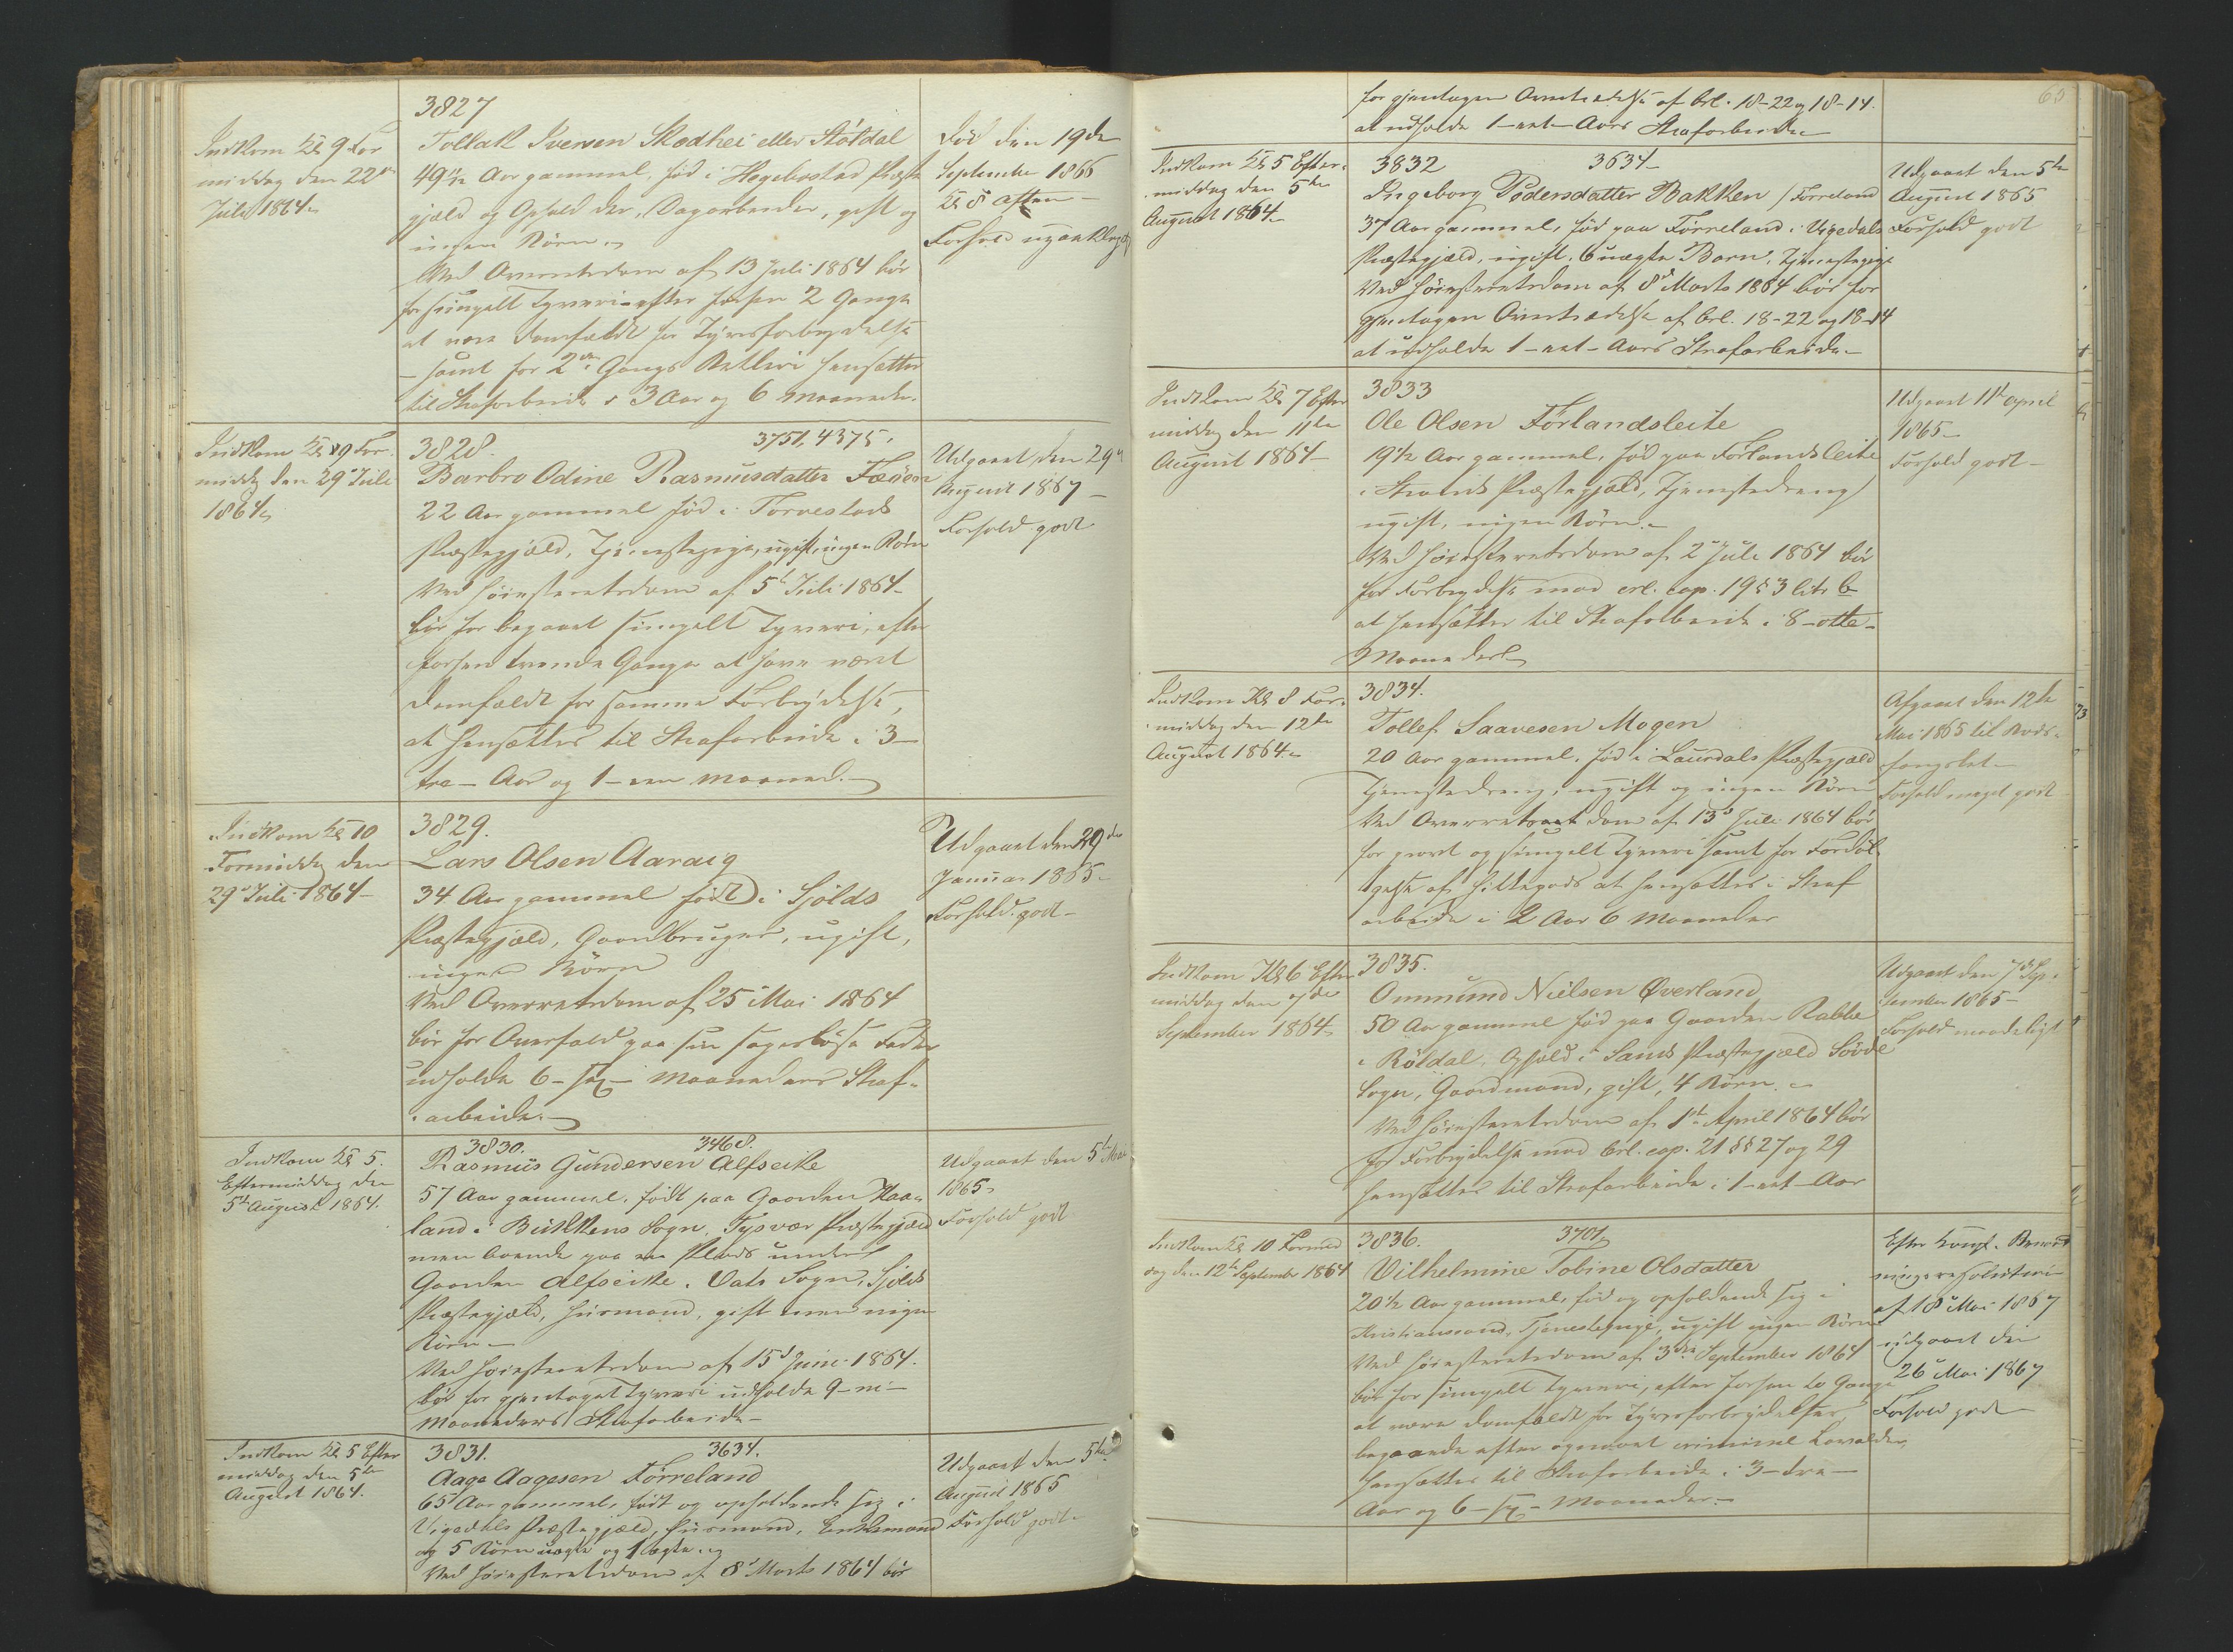 3827
Indkom Kl 9 For
middag den 22de
Juli 1864
Tollak Iversen Skodhei eller Stöldal
49 1/2 Aar gammel, född i Hegebostad Præste
gjæld og Ophold der, Dagarbeider, gift og
ingen Börn
Ved Overretsdom af 13 Juli 1864 bör
for simpelt Tyveri efter forhen 2 Gange
at være domfældt for Tyvsforbrydelse
samt for 2den Gangs Betleri hensættes
til Strafarbeide i 3 Aar og 6 Maaneder.
Död den 19de
September 1866
Kl 8 Aften
Forhold upaaklage
Indkom Kl 9 For
middg den 29de Juli
1864
3828. 3751, 4375.
Barbro Odine Rasmusdatter Fæöen
22 Aar gammel född i Torvestads
Præstegjæld, Tjenestepige, ugift, ingen Börn
Ved Höiesteretsdom af 5te Juli 1864
bör for begaaet simpelt Tyveri, efter
forhen trende Gange at have været
domfældt for samme Forbrydelse,
at hensættes til Strafarbeide i 3
tre Aar og 1 een Maaned.
Udgaaet den 29de
August 1867
Forhold godt
Indkom Kl 10
Formiddg den
29de Juli 1864
3829.
Lars Olsen Aaraig
34 Aar gammel född i Sjölds
Præstegjæld, Gaardbruger, ugift,
ingen Börn
Ved Overretsdom af 25 Mai 1864
bör for Overfald paa sin sagesløse Fader
udholde 6 sex Maaneders Straf
arbeide.
Udgaaet den 29de
Januar 1865
Forhold godt
Indkom Kl 5.
Eftermiddag den
5te August 1864.
3830. 3468.
Rasmus Gundersen Alfseike
57 Aar gammel, födt paa Gaarden Haa
land i Bukkens Sogn, Tysvær Præstegjæld
men boende paa en Plads under
Gaarden Alfseike, Vats Sogn, Sjölds
Præstegjæld, Husmand, gift men ingen
Börn
Ved Höiesteretsdom af 15de Juni 1864.
bör for gjentaget Tyveri udholde 9 ni
Maaneders Strafarbeide
Udgaaet den 5te Mai
1865
Forhold godt
Indkom Kl 5 Efter
middag den 5te
August 1864.
3831. 3634.
Aage Aagesen Förreland
65 Aar gammel, födt og opholdende sig i
Vigedahls Præstegjæld, Husmand, Enkemand
og 5 Börn uægte og 1 ægte
Ved Höiesteretsdom af 8de Marts 1864 bör
Udgaaet den 5te
August 1865
Forhold godt
65
for gjentagen Overtrædelse af Crl. 18-22 og 18-14.
at udholde 1 eet Aars Strafarbeide
Indkom Kl 5 Efter
middag den 5te
August 1864
3832 3634
Ingeborg Pedersdatter Bakken / Förreland
37 Aar gammel, född paa Förreland i Vigedals
Præstegjæld, ugift, 6 uægte Börn, Tjenestepige
Ved Höiesteretsdom af 8de Marts 1864 bör for
gjentagen Overtrædelse af Crl. 18-22 og 18-14
at udholde 1 eet Aars Strafarbeide
Udgaaet den 5te
August 1865
Forhold godt
Indkom Kl 7 Efter
middag den 11te
August 1864
3833
Ole Olsen Förlandsleite
19 1/2 Aar gammel, född paa Förlandsleite
i Strands Præstegjæld, Tjenestedreng
ugift, ingen Börn.
Ved Höiesteretsdom af 2de Juli 1864 bör
for Forbrydelse mod crl. cap. 19 § 3 litr b
at hensættes til Strafarbeide i 8 otte
Maaneder
Udgaaet 11te April
1865
Forhold godt
Indkom Kl 8 For
middag den 12te
August 1864
3834.
Tollef Saavesen Mogen
20 Aar gammel, född i Laurdals Præstegjæld
Tjenestedreng, ugift og ingen Börn
Ved Overretsdom af 13de Juli 1864 bör
for grovt og simpelt Tyveri samt for Fordöl
gelse af Hittegods at hensættes i Straf
arbeide i 2 Aar 6 Maaneder
Afgaaet den 12te
Mai 1865 til Bods
fængslet
Forhold meget godt
Indkom Kl 6 Efter
middag den 7de
September 1864
3835.
Ommund Nielsen Øverland
50 Aar gammel född paa Gaarden Rabbe
i Röldal. Ophold i Sands Præstegjæld Sövde
Sogn, Gaardmand, gift, 4 Börn.
Ved Höiesteretsdom af 1ste April 1864 bör
for Forbrydelse mod Crl. cap. 21 §§ 27 og 29
hensættes til Strafarbeide i 1 eet Aar
Udgaaet den 7de Sep
tember 1865
Forhold maadeligt
Indkom Kl 10 Formid
dag den 12te September 1864
3836. 3701
Vilhelmine Tobine Olsdatter
20 1/2 Aar gammel, född og opholdende sig i
Kristianssand, Tjenestepige, ugift ingen Börn
Ved Höiesteretsdom af 3die September 1864
bör for simpelt Tyveri, efter forhen to Gange
at være domfældt for Tyvsforbrydelser
begaaede efter opnaaet criminel Lavalder,
hensættes til Strafarbeide i 3 tre
Aar og 6 sex Maaneder.
Efter kongl. Benaad
ningsresolution
af 18de Mai 1867
udgaaet den
26de Mai 1867
Forhold godt